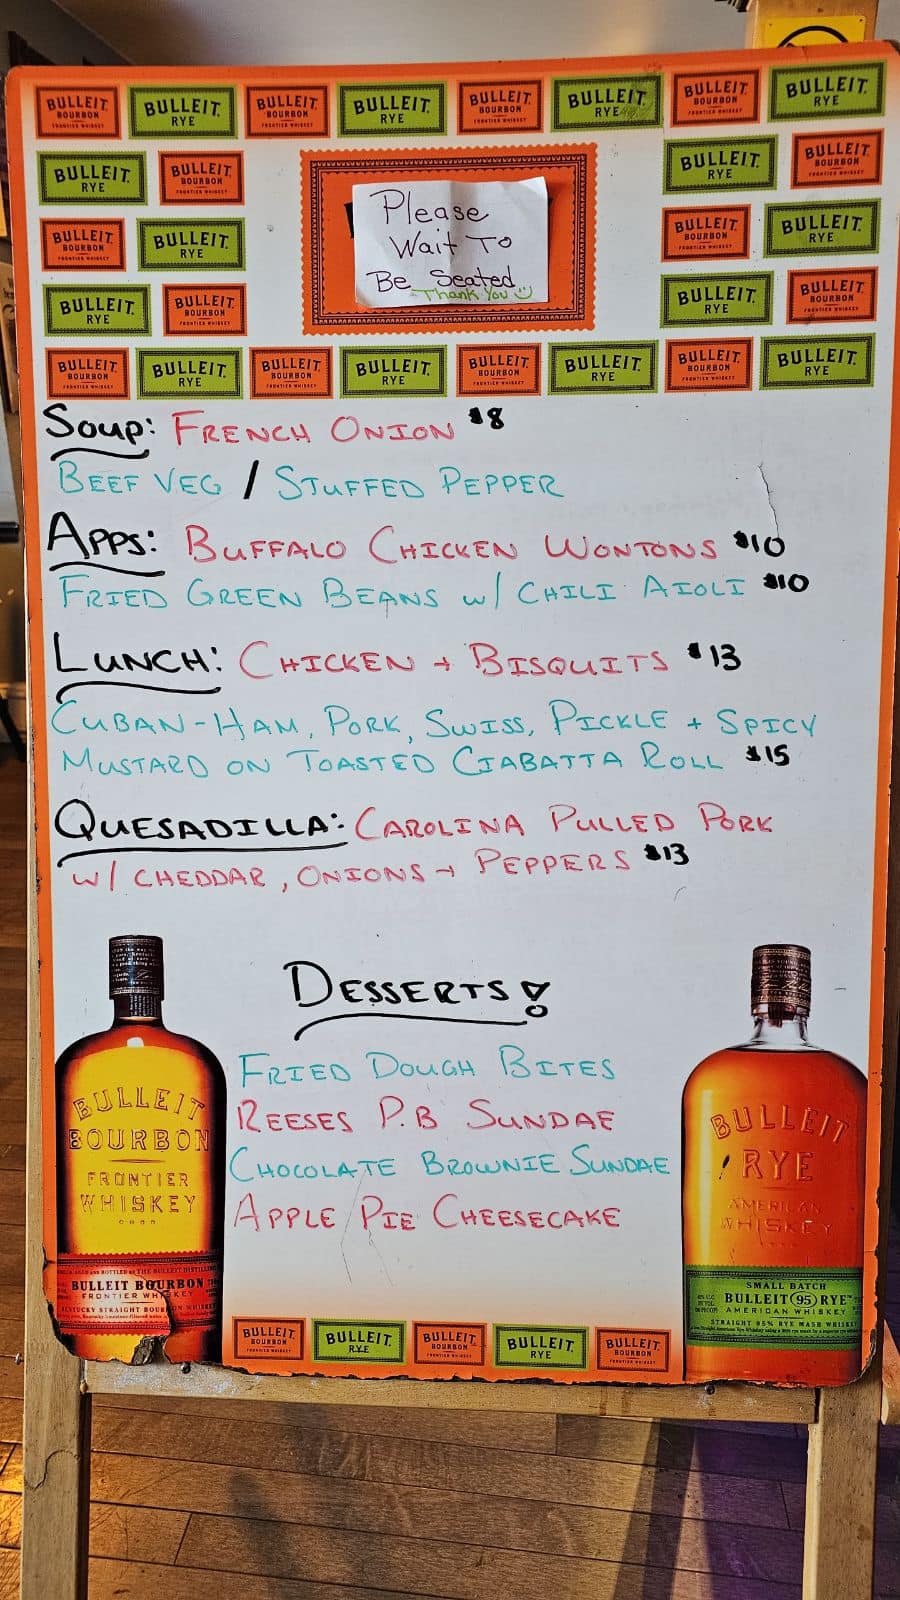 BULLEIT BOURBON FRONTIER WHISKEY BULLEIT RYE BULLEIT BOURBON FRONTIER WHISKEY BULLEIT RYE BULLEIT BOURBON FRONTIER WHISKEY BULLEIT RYE BULLEIT BOURBON FRONTIER WHISKEY BULLEIT RYE
BULLEIT RYE BULLEIT BOURBON FRONTIER WHISKEY BULLEIT RYE BULLEIT BOURBON FRONTIER WHISKEY
BULLEIT BOURBON FRONTIER WHISKEY BULLEIT RYE BULLEIT BOURBON FRONTIER WHISKEY BULLEIT RYE
BULLEIT RYE BULLEIT BOURBON FRONTIER WHISKEY BULLEIT RYE BULLEIT BOURBON FRONTIER WHISKEY
Please
Wait To
Be Seated
Thank You
BULLEIT BOURBON FRONTIER WHISKEY BULLEIT RYE BULLEIT BOURBON FRONTIER WHISKEY BULLEIT RYE BULLEIT BOURBON FRONTIER WHISKEY BULLEIT RYE BULLEIT BOURBON FRONTIER WHISKEY BULLEIT RYE
Soup: FRENCH ONION $8
BEEF VEG / STUFFED PEPPER
APPS: BUFFALO CHICKEN WONTONS $10
FRIED GREEN BEANS w/ CHILI AIOLI $10
LUNCH: CHICKEN + BISQUITS $13
CUBAN-HAM, PORK, SWISS, PICKLE + SPICY
MUSTARD ON TOASTED CIABATTA ROLL $15
QUESADILLA: CAROLINA PULLED PORK
w/ CHEDDAR, ONIONS + PEPPERS $13
DESSERTS!
FRIED DOUGH BITES
REESES P.B SUNDAE
CHOCOLATE BROWNIE SUNDAE
APPLE PIE CHEESECAKE
BULLEIT
BOURBON
FRONTIER
WHISKEY
BULLEIT BOURBON
FRONTIER WHISKEY
KENTUCKY STRAIGHT BOURBON WHISKEY
BULLEIT
RYE
AMERICAN
WHISKEY
SMALL BATCH
BULLEIT 95 RYE
AMERICAN WHISKEY
STRAIGHT 95% RYE MASH WHISKEY
BULLEIT BOURBON FRONTIER WHISKEY BULLEIT RYE BULLEIT BOURBON FRONTIER WHISKEY BULLEIT RYE BULLEIT BOURBON FRONTIER WHISKEY